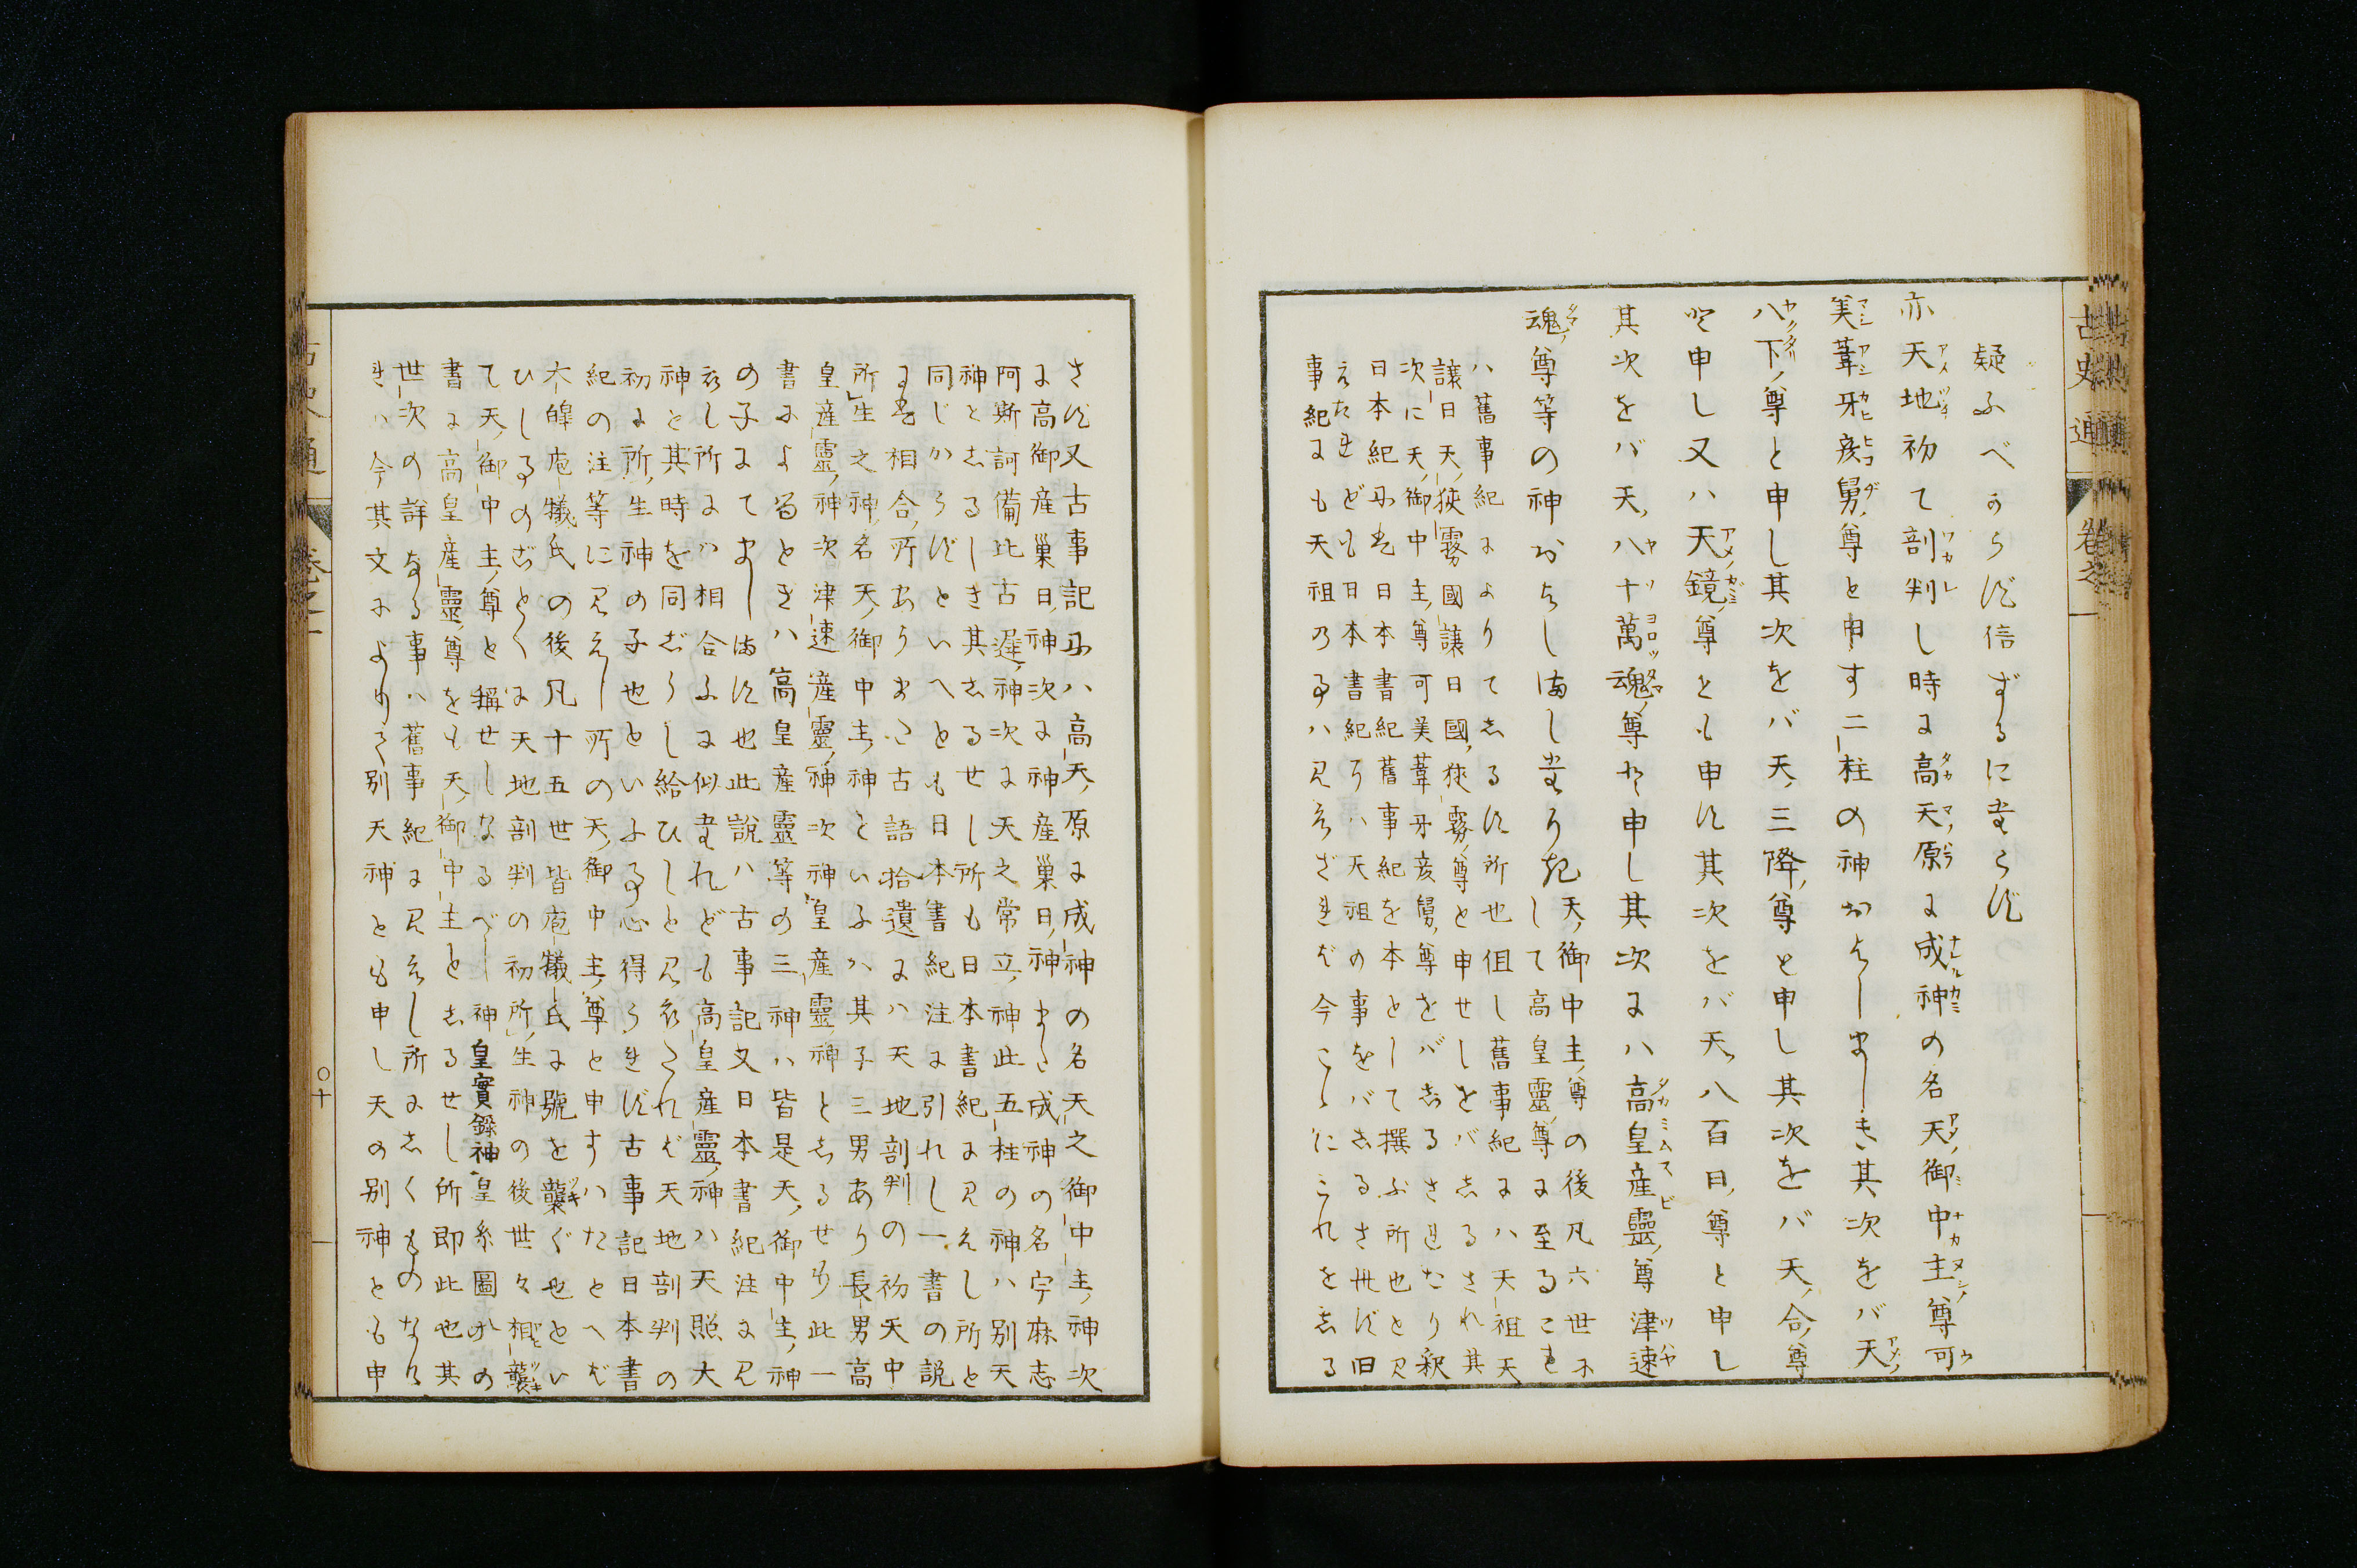 疑ふべからず信ずるに堂らず
亦天地初て剖判し時に高天原に成神の名天御中主尊可
美葦牙彦舅尊と申す二柱の神おはしましき其次をバ天
八下尊と申し其次をバ天三降尊と申し其次をバ天合尊
と申し又ハ天鏡尊とも申す其次をバ天八百日尊と申し
其次をバ天八十萬魂尊と申し其次にハ高皇産靈尊津速
魂尊等の神おはしましたりき天御中主尊の後凡六世に
して高皇靈尊に至ること
ハ舊事紀によりてしるす所也但し舊事紀にハ天祖天
讓日天狹霧國讓日國狹霧尊と申せしをバしるされ其
次に天御中主尊可美葦牙彦舅尊をバしるされたり釈
日本紀にも日本書紀舊事紀を本として撰ぶ所也と見
えたれども日本書紀にハ天祖の事をバしるされず旧
事紀にも天祖の事ハ見えざれば今こゝにこれをしる
さず又古事記にハ高天原に成神の名天之御中主神次
に高御産巣日神次に神産巣日神また成神の名宇麻志
阿斯訶備比古遅神次に天之常立神此五柱の神ハ別天
神としるしき其しるせし所も日本書紀に見えし所と
同じからずといへども日本書紀注に引れし一書の説
にも相合所ありまた古語拾遺にハ天地剖判の初天中
所生之神名天御中主神といふハ其子三男あり長男高
皇産靈神次津速産靈神次神皇産靈神としるせり此一
書によるときハ高皇産靈等の三神ハ皆是天御中主神
の子にてまします也此説ハ古事記又日本書紀注に見
えし所にハ相合ふに似たれども高皇産靈神ハ天照大
神と其時を同じうし給ひしと見えたれば天地剖判の
初に所生神の子也といふ事心得られず古事記日本書
紀の注等に見えし所の天御中主尊と申すハたとへば
太皡庖犧氏の後凡十五世皆庖犧氏に號を襲ぐ也とい
ひしるのごとくに天地剖判の初所生神の後世々相襲
て天御中主尊と稱せしなるべし神皇實録神皇系圖等の
書に高皇産靈尊をも天御中主としるせし所即此也其
世次の詳なる事ハ舊事紀に見えし所にしくものなけ
れハ今其文によりき別天神とも申し天の別神とも申
古史通
卷之一
〇十